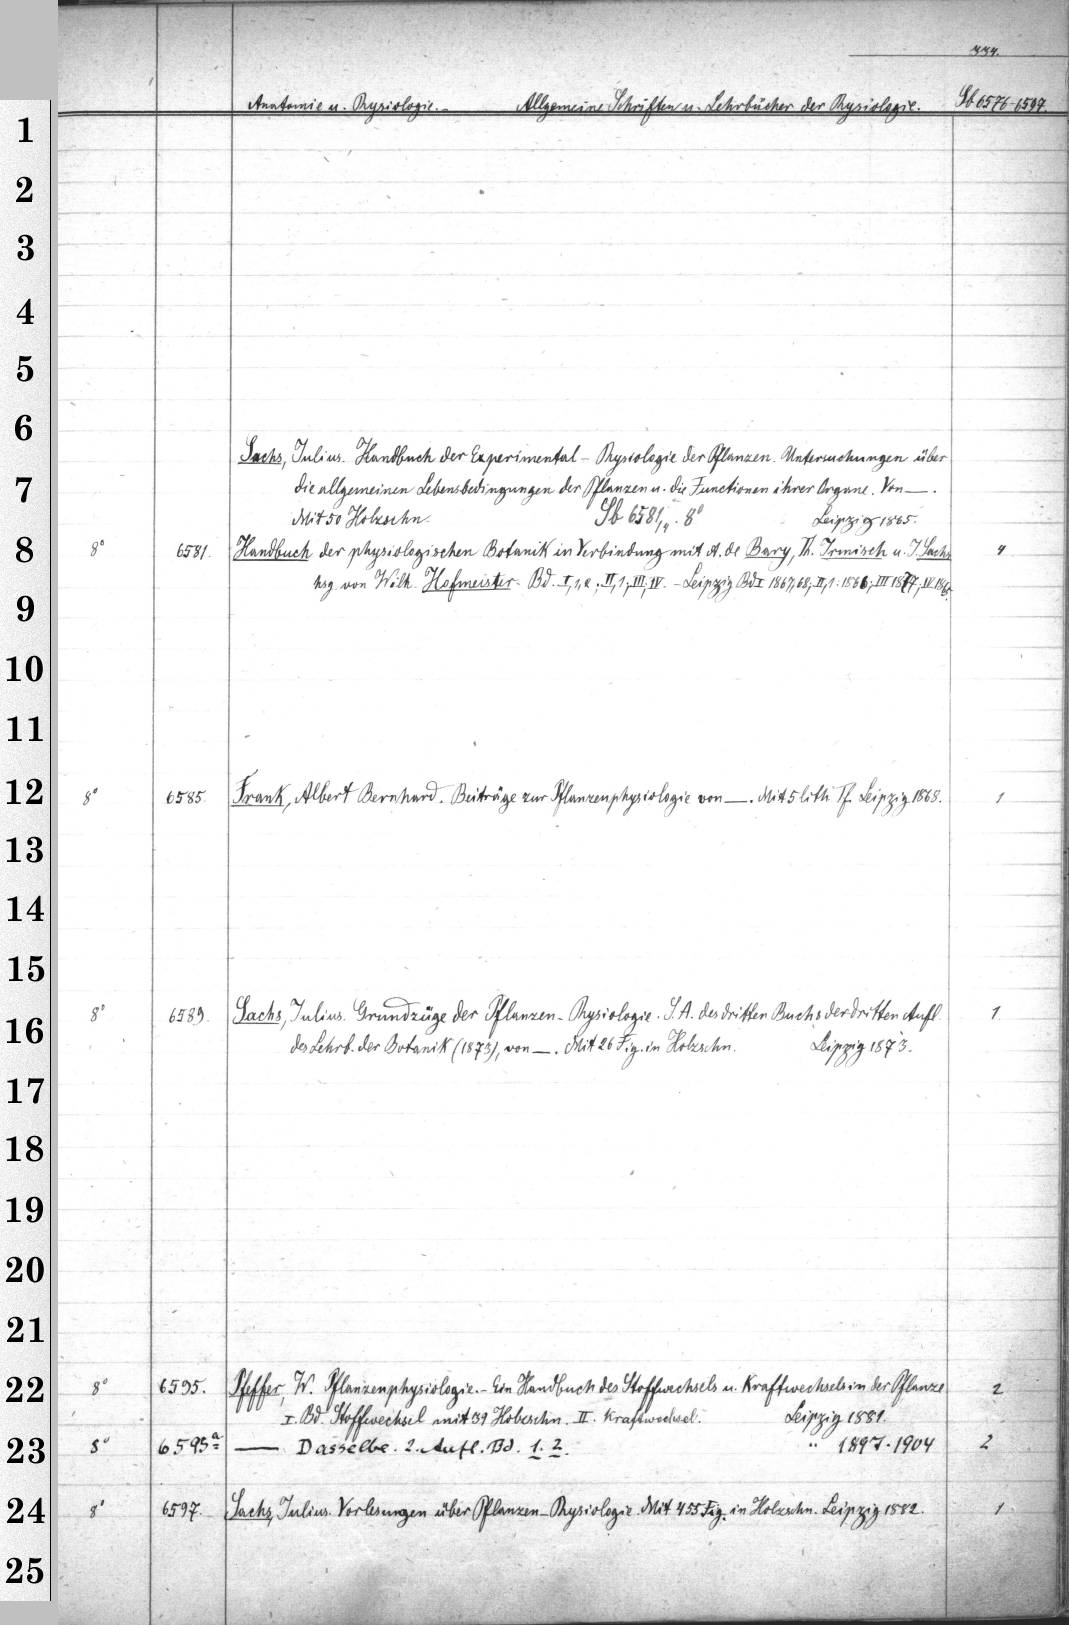 334.
Anatomie u. Physiologie. – Allgemeine Schriften u. Lehrbücher der Physiologie. Sb 6576-6597.
1
2
3
4
5
6
Sachs, Julius. Handbuch der Experimental – Physiologie der Pflanzen. Untersuchungen über
7
die allgemeinen Lebensbedingungen der Pflanzen u. die Functionen ihrer Organe. Von —.
Mit 50 Holzschn. Sb 6581,4. 8° Leipzig 1865.
8 8° 6581. Handbuch der physiologischen Botanik in Verbindung mit A. de Bary, Th. Irmisch u. J. Sachs 4
hsg. von Wilh. Hofmeister. Bd. I,1,2; II,1; III, IV. – Leipzig Bd I 1867,68; II,1: 1866; III 1877; IV 1865.
9
10
11
12 8° 6585. Frank, Albert Bernhard. Beiträge zur Pflanzenphysiologie von —. Mit 5 lith Tf. Leipzig 1868. 1
13
14
15
8° 6589. Sachs, Julius. Grundzüge der Pflanzen – Physiologie. S. A. des dritten Buchs der dritten Aufl. 1
16
des Lehrb. der Botanik (1873), von —. Mit 26 Fig. in Holzschn. Leipzig 1873.
17
18
19
20
21
22 8° 6595. Pfeffer, W. Pflanzenphysiologie. – Ein Handbuch des Stoffwechsels u. Kraftwechsels in der Pflanze 2
I. Bd. Stoffwechsel mit 39 Holzschn. II. Kraftwechsel. Leipzig 1881.
23 8° 6595a — Dasselbe. 2. Aufl. Bd. 1. 2. " 1897 - 1904 2
24 8° 6597. Sachs, Julius. Vorlesungen über Pflanzen – Physiologie. Mit 455 Fig. in Holzschn. Leipzig 1882. 1
25